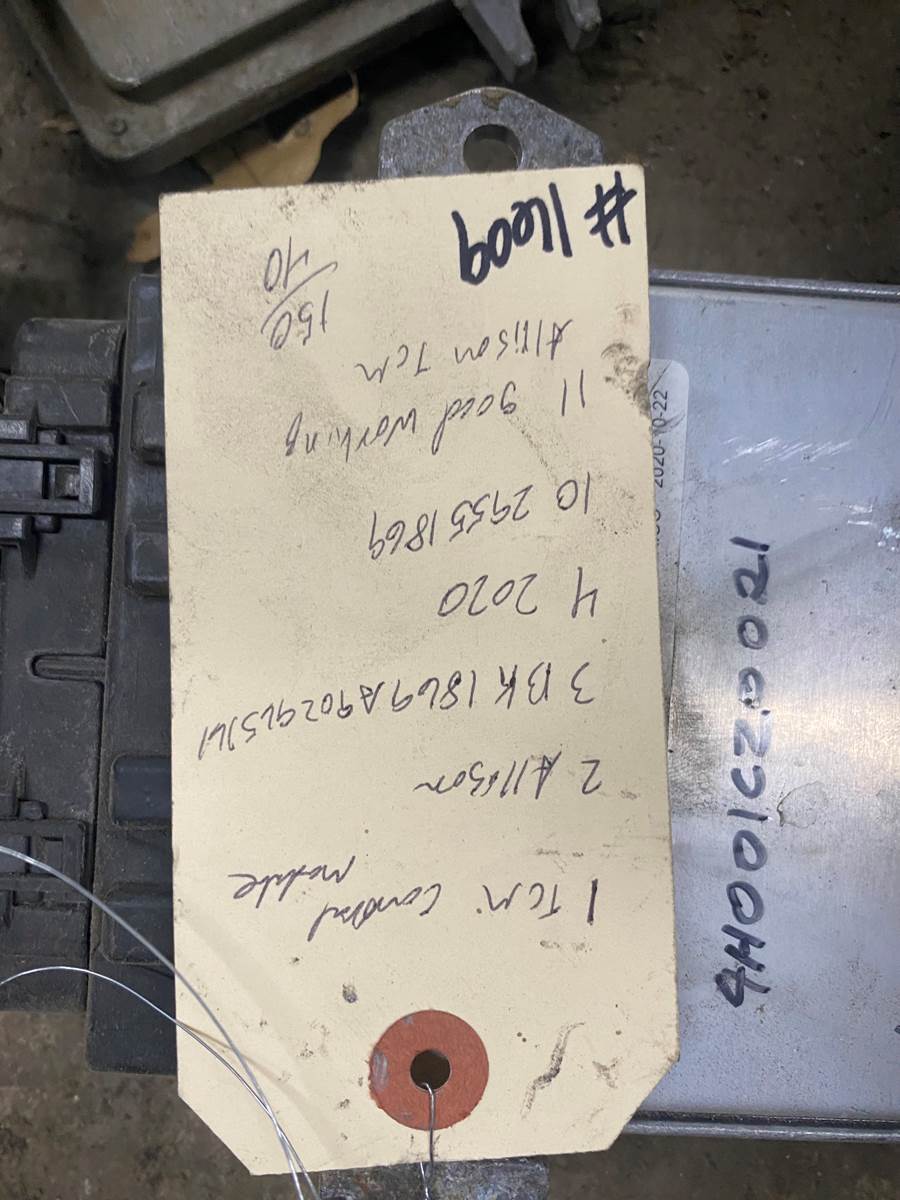 1 TCM Control
module
2 Allison
3 BK1869A902965161
4 2020
10 29551869
11 good working
Allison TCM
150
70
#1609
2020-10-22
4H001CZ0021